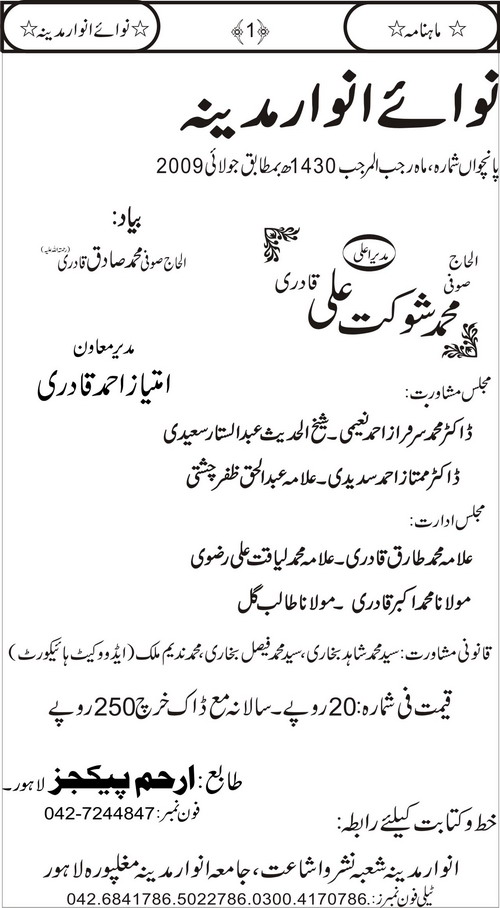 ☆ ماہنامہ ☆ ﴿1﴾ ☆ نوائے انوار مدینہ ☆
نوائے انوار مدینہ
پانچواں شمارہ، ماہ رجب المرجب 1430ھ بمطابق جولائی 2009
بیاد:
الحاج صوفی محمد صادق قادری (رحمۃ اللہ علیہ)
مدیر اعلیٰ
الحاج صوفی محمد شوکت علی قادری
مدیر معاون
امتیاز احمد قادری
مجلس مشاورت:
ڈاکٹر محمد سرفراز احمد نعیمی۔ شیخ الحدیث عبدالستار سعیدی
ڈاکٹر ممتاز احمد سدیدی۔ علامہ عبدالحق ظفر چشتی
مجلس ادارت:
علامہ محمد طارق قادری۔ علامہ محمد لیاقت علی رضوی
مولانا محمد اکبر قادری ۔ مولانا طالب گل
قانونی مشاورت: سید محمد شاہد بخاری، سید محمد فیصل بخاری، محمد ندیم ملک (ایڈووکیٹ ہائیکورٹ)
قیمت فی شمارہ: 20 روپے۔ سالانہ مع ڈاک خرچ 250 روپے
طابع: ارحم پیکجز لاہور۔
فون نمبر: 042-7244847
خط و کتابت کیلئے رابطہ:
انوار مدینہ شعبہ نشر و اشاعت، جامعہ انوار مدینہ مغلپورہ لاہور
ٹیلی فون نمبرز: 042.6841786.5022786.0300.4170786.